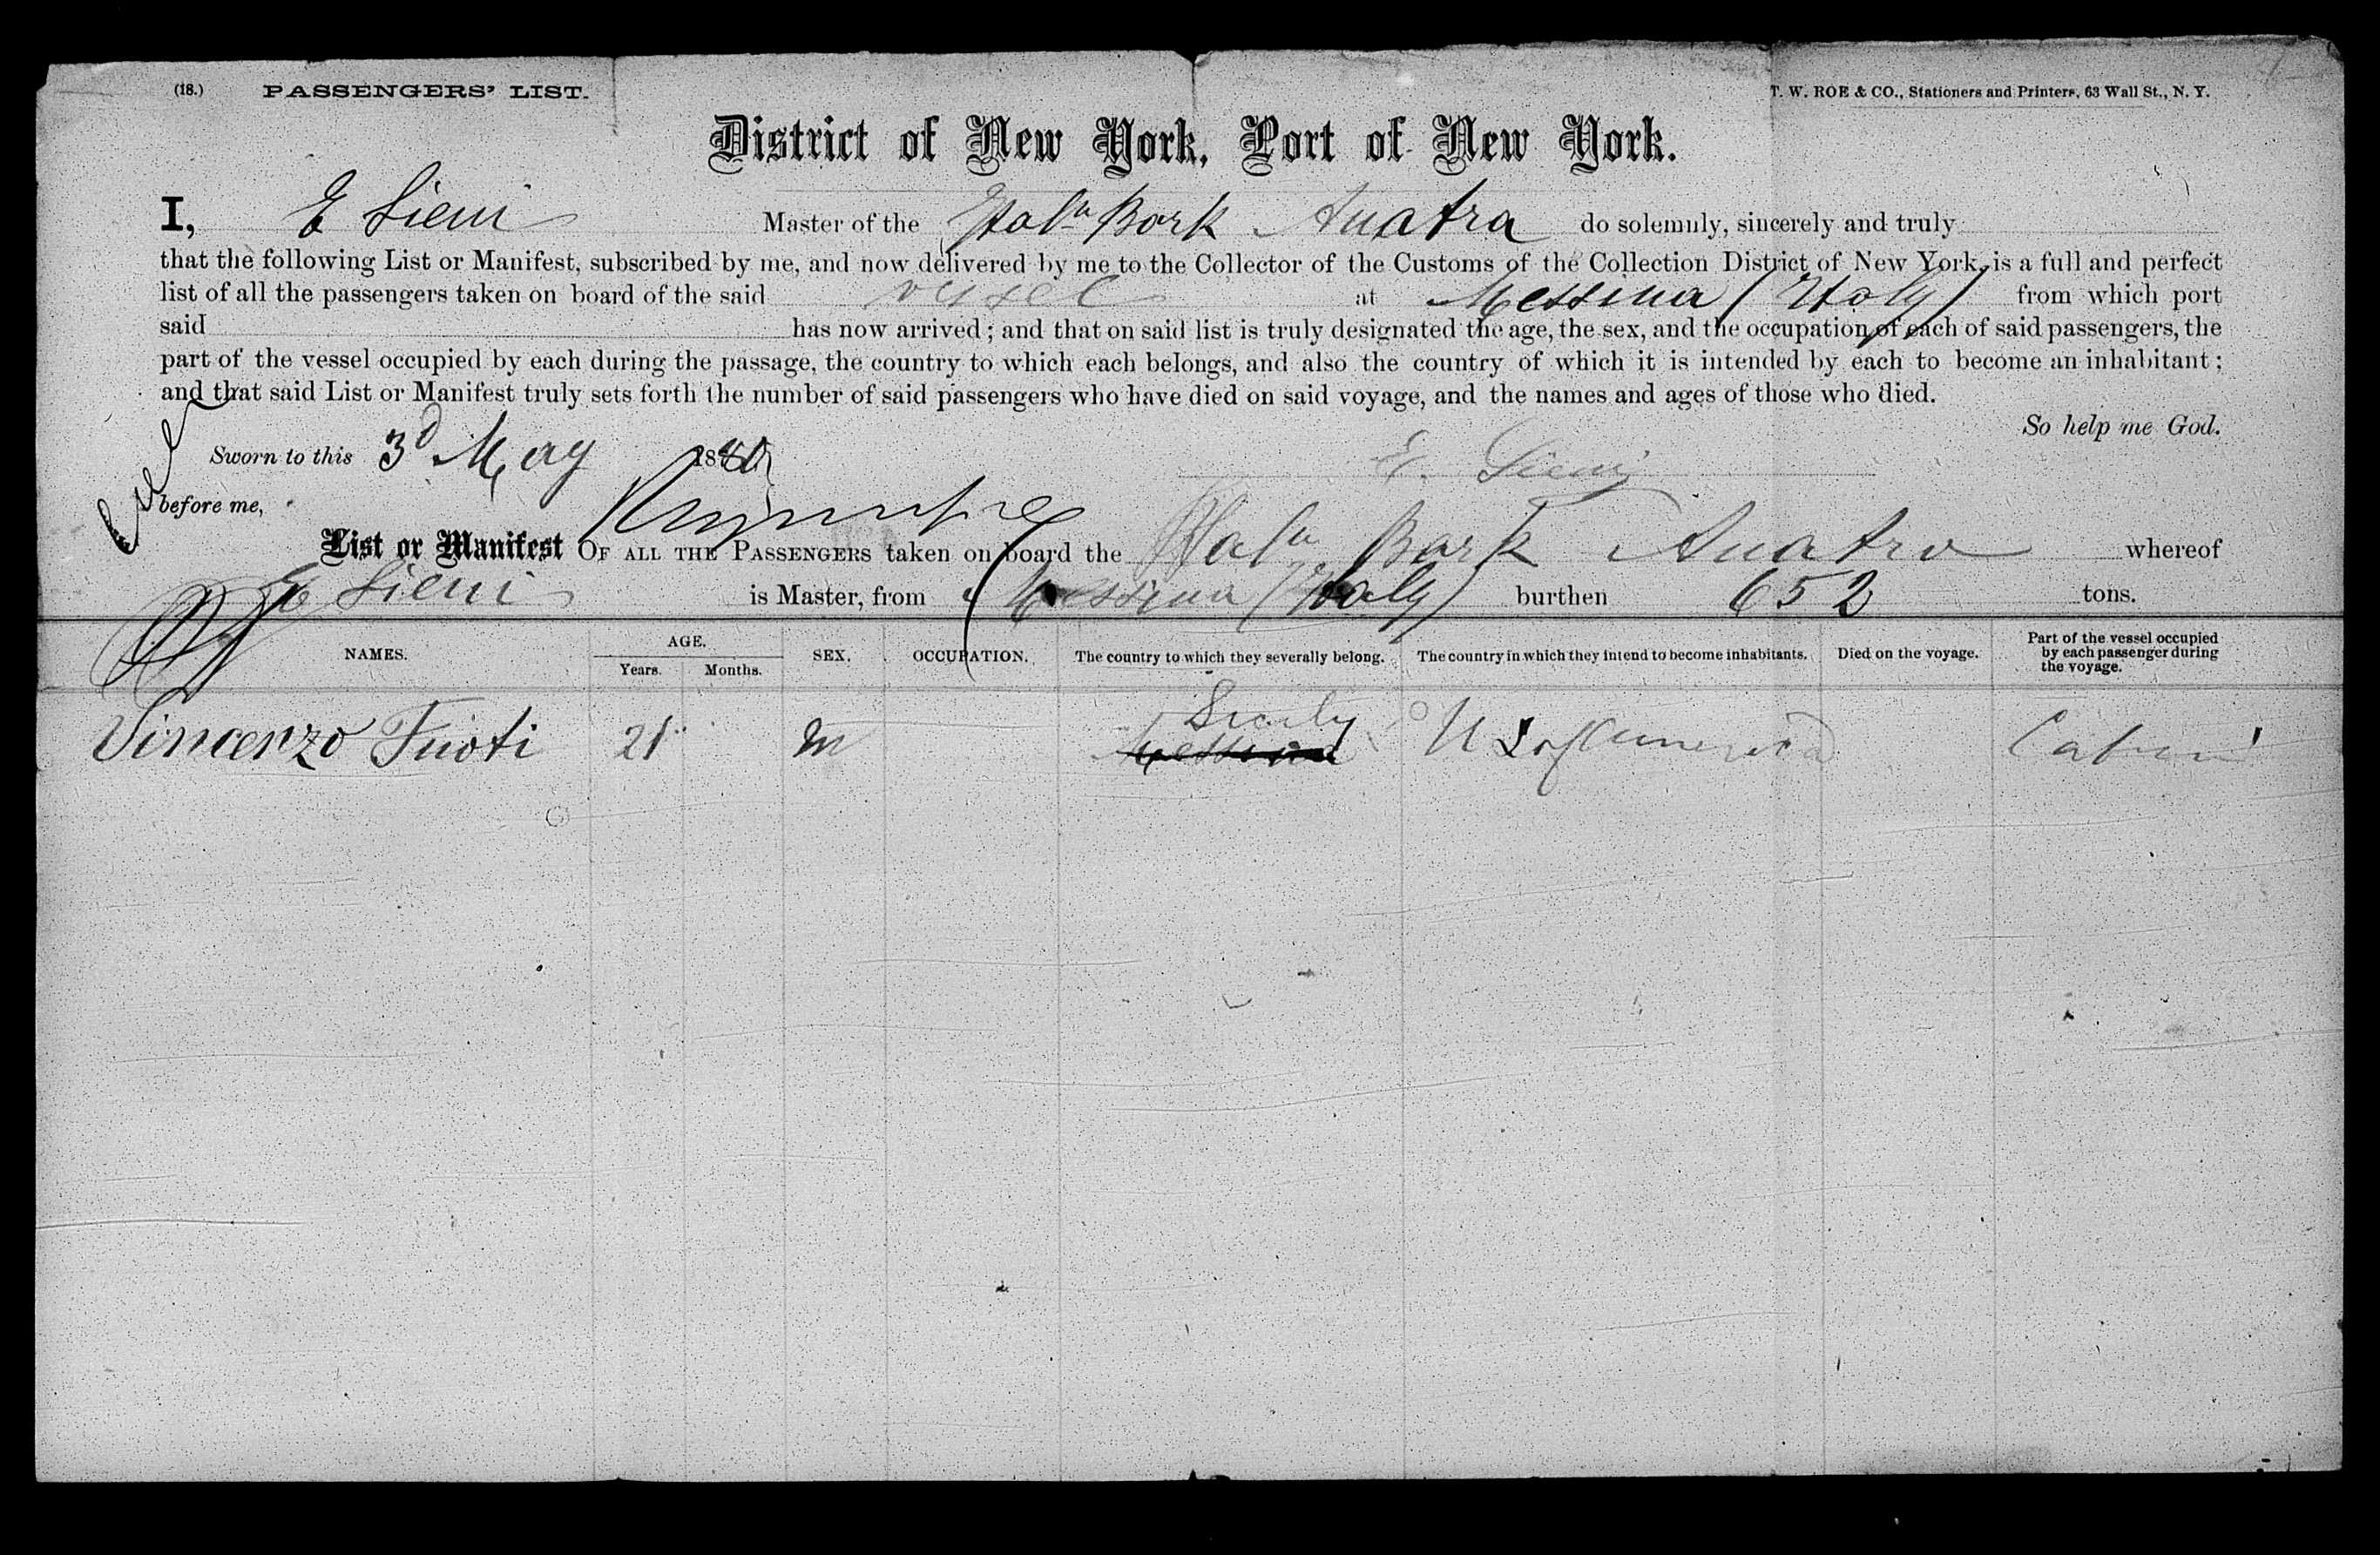 (18.) PASSENGERS' LIST. T. W. ROE & CO., Stationers and Printers, 63 Wall St., N. Y.
District of New York, Port of New York.
I, E Sieni Master of the Italn Bark Anatra do solemnly, sincerely and truly
that the following List or Manifest, subscribed by me, and now delivered by me to the Collector of the Customs of the Collection District of New York, is a full and perfect
list of all the passengers taken on board of the said vessel at Messina (Italy) from which port
said has now arrived; and that on said list is truly designated the age, the sex, and the occupation of each of said passengers, the
part of the vessel occupied by each during the passage, the country to which each belongs, and also the country of which it is intended by each to become an inhabitant;
and that said List or Manifest truly sets forth the number of said passengers who have died on said voyage, and the names and ages of those who died.
So help me God.
Sworn to this 3d May 1880 E. Sieni
before me,
List or Manifest OF ALL THE PASSENGERS taken on board the Italn Bark Anatra whereof
E Sieni is Master, from Messina (Italy) burthen 652 tons.
NAMES. AGE. Years. Months. SEX. OCCUPATION. The country to which they severally belong. The country in which they intend to become inhabitants. Died on the voyage. Part of the vessel occupied by each passenger during the voyage.
Vincenzo Fuoti 21 m Messina Sicily U S of America Cabin